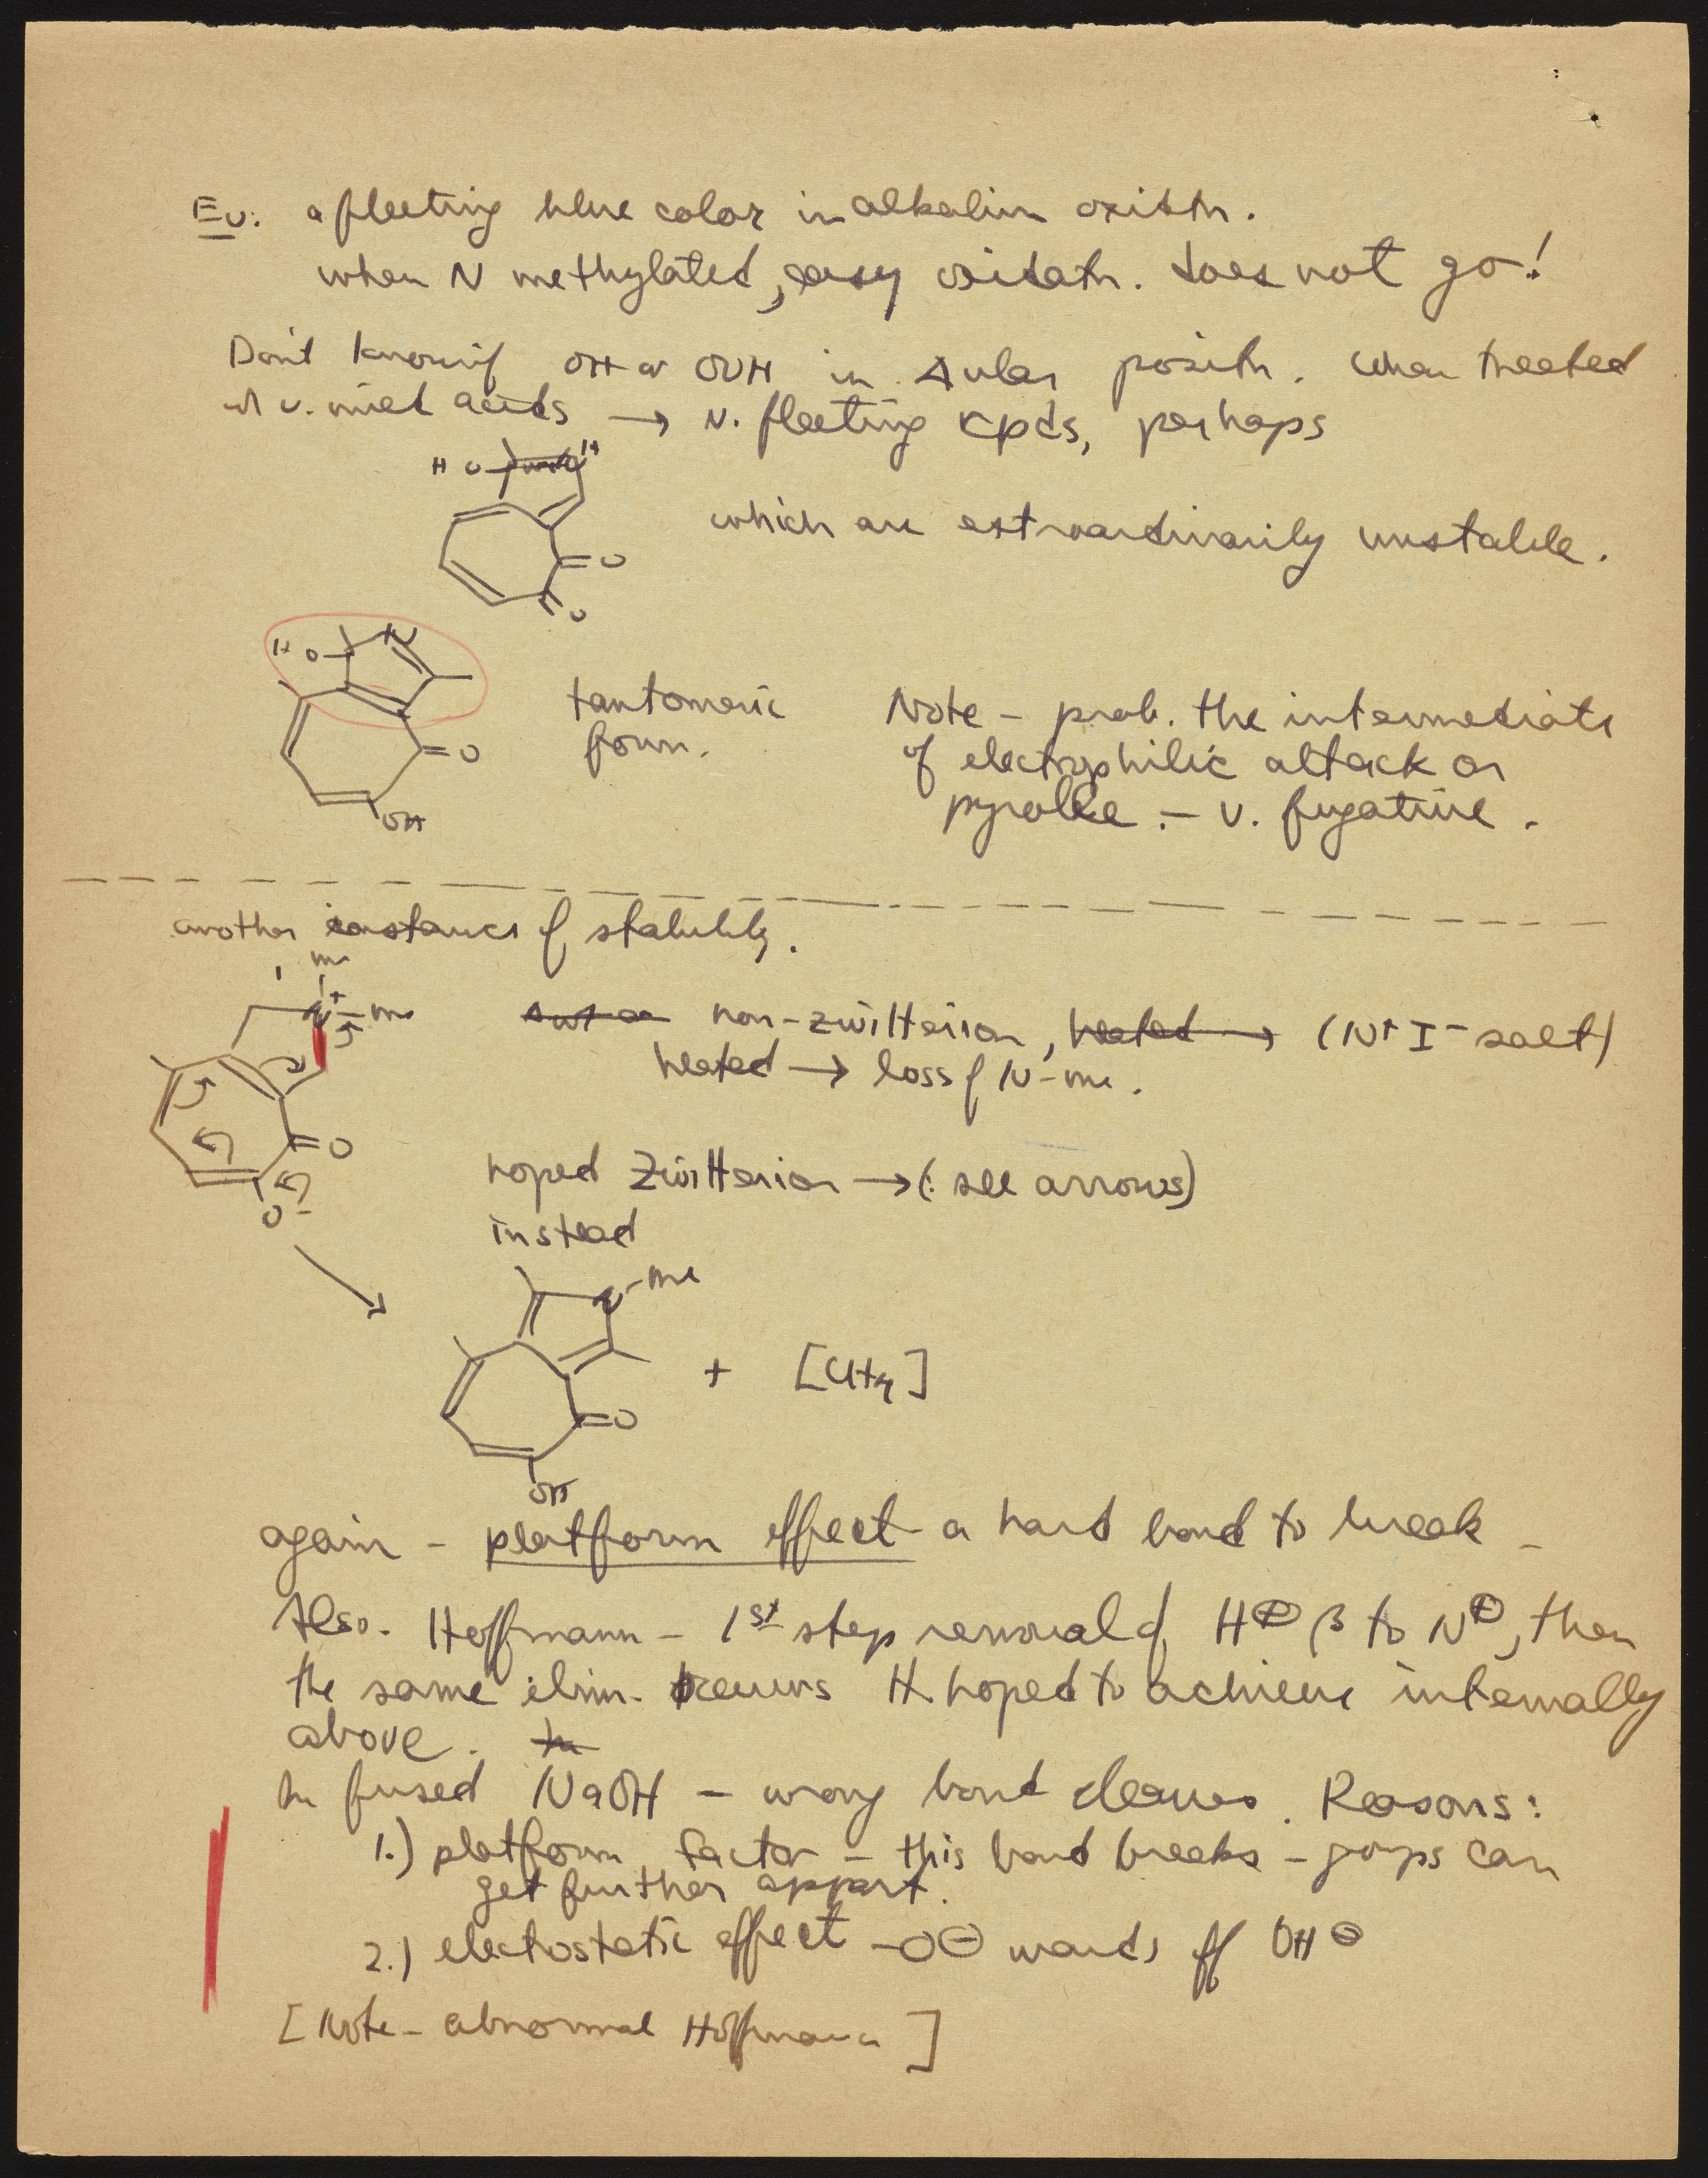 Ev: a fleeting blue color in alkalin oxistn.
when N methylated, easy oxidatn. does not go!
Don't know if OH or OOH in angular positn. When treated
w/ v. mild acids → v. fleeting cpds, perhaps
H O H
which are extraordinarily unstable.
O
O
H O N
tautomeric
form.
O
OH
Note - prob. the intermediate
of electrophilic attack on
pyrolle - v. fugative.
another instance of stability.
me
N + me
non-zwitterion, heated → (N+ I- salt)
heated → loss of N-me.
O
O-
hoped Zwitterion → (see arrows)
instead
N-me
O
OH
+ [CH4]
again - platform effect - a hard bond to break -
Also. Hoffmann - 1st step removal of H⊕ β to N⊕, then
the same elim. occurs H. hoped to achieve internally
above.
In fused NaOH - wrong bond cleaves. Reasons:
1.) platform factor - this bond breaks - groups can
get further appart.
2.) electrostatic effect -O⊖ wards off OH⊖
[Note - abnormal Hoffmann]